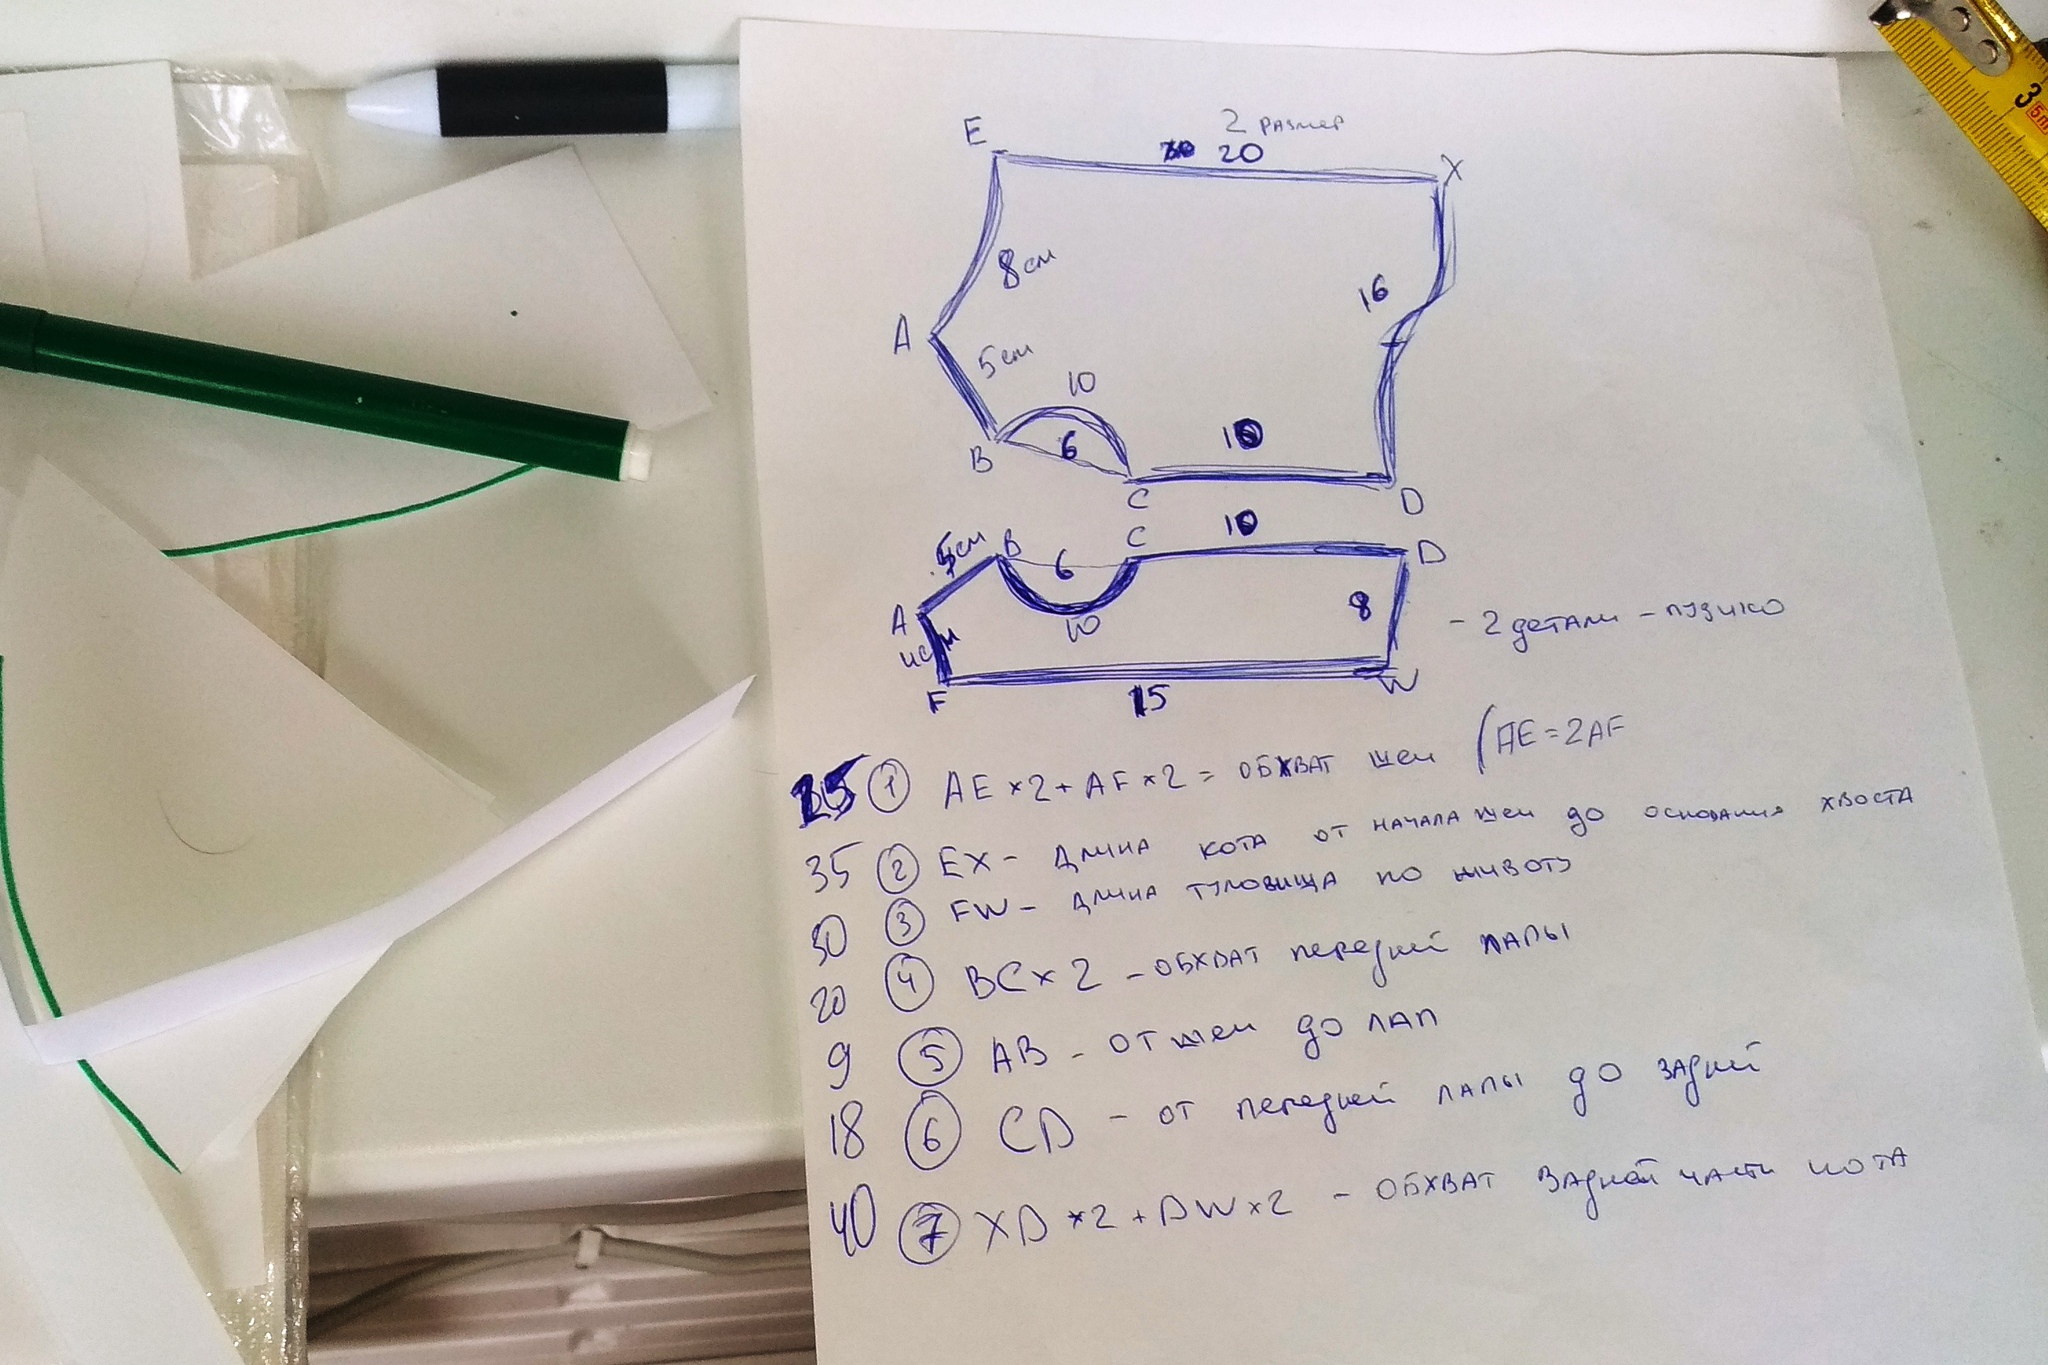 2 размер
E 20 X
8 см
16
A
5 см
10
6
10
B
C
D
5 см B 6 C 10 D
A
4 см
10
8
- 2 детали - пузико
F
15
W
25 ① AE × 2 + AF × 2 = обхват шеи (AE = 2AF
35 ② EX - длина кота от начала шеи до основания хвоста
30 ③ FW - длина туловища по животу
20 ④ BC × 2 - обхват передней лапы
9 ⑤ AB - от шеи до лап
18 ⑥ CD - от передней лапы до задней
40 ⑦ XD × 2 + DW × 2 - обхват задней части кота
3
5m